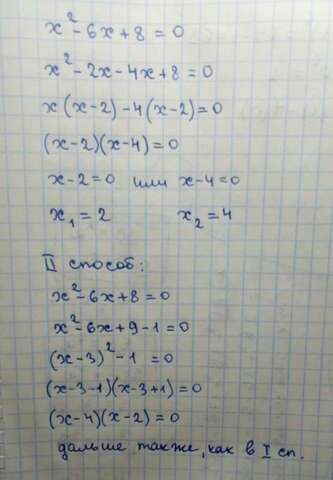 x² - 6x + 8 = 0
x² - 2x - 4x + 8 = 0
x(x-2) - 4(x-2) = 0
(x-2)(x-4) = 0
x-2=0 или x-4=0
x₁ = 2 x₂ = 4
II способ:
x² - 6x + 8 = 0
x² - 6x + 9 - 1 = 0
(x-3)² - 1 = 0
(x-3-1)(x-3+1) = 0
(x-4)(x-2) = 0
дальше также, как в I сп.